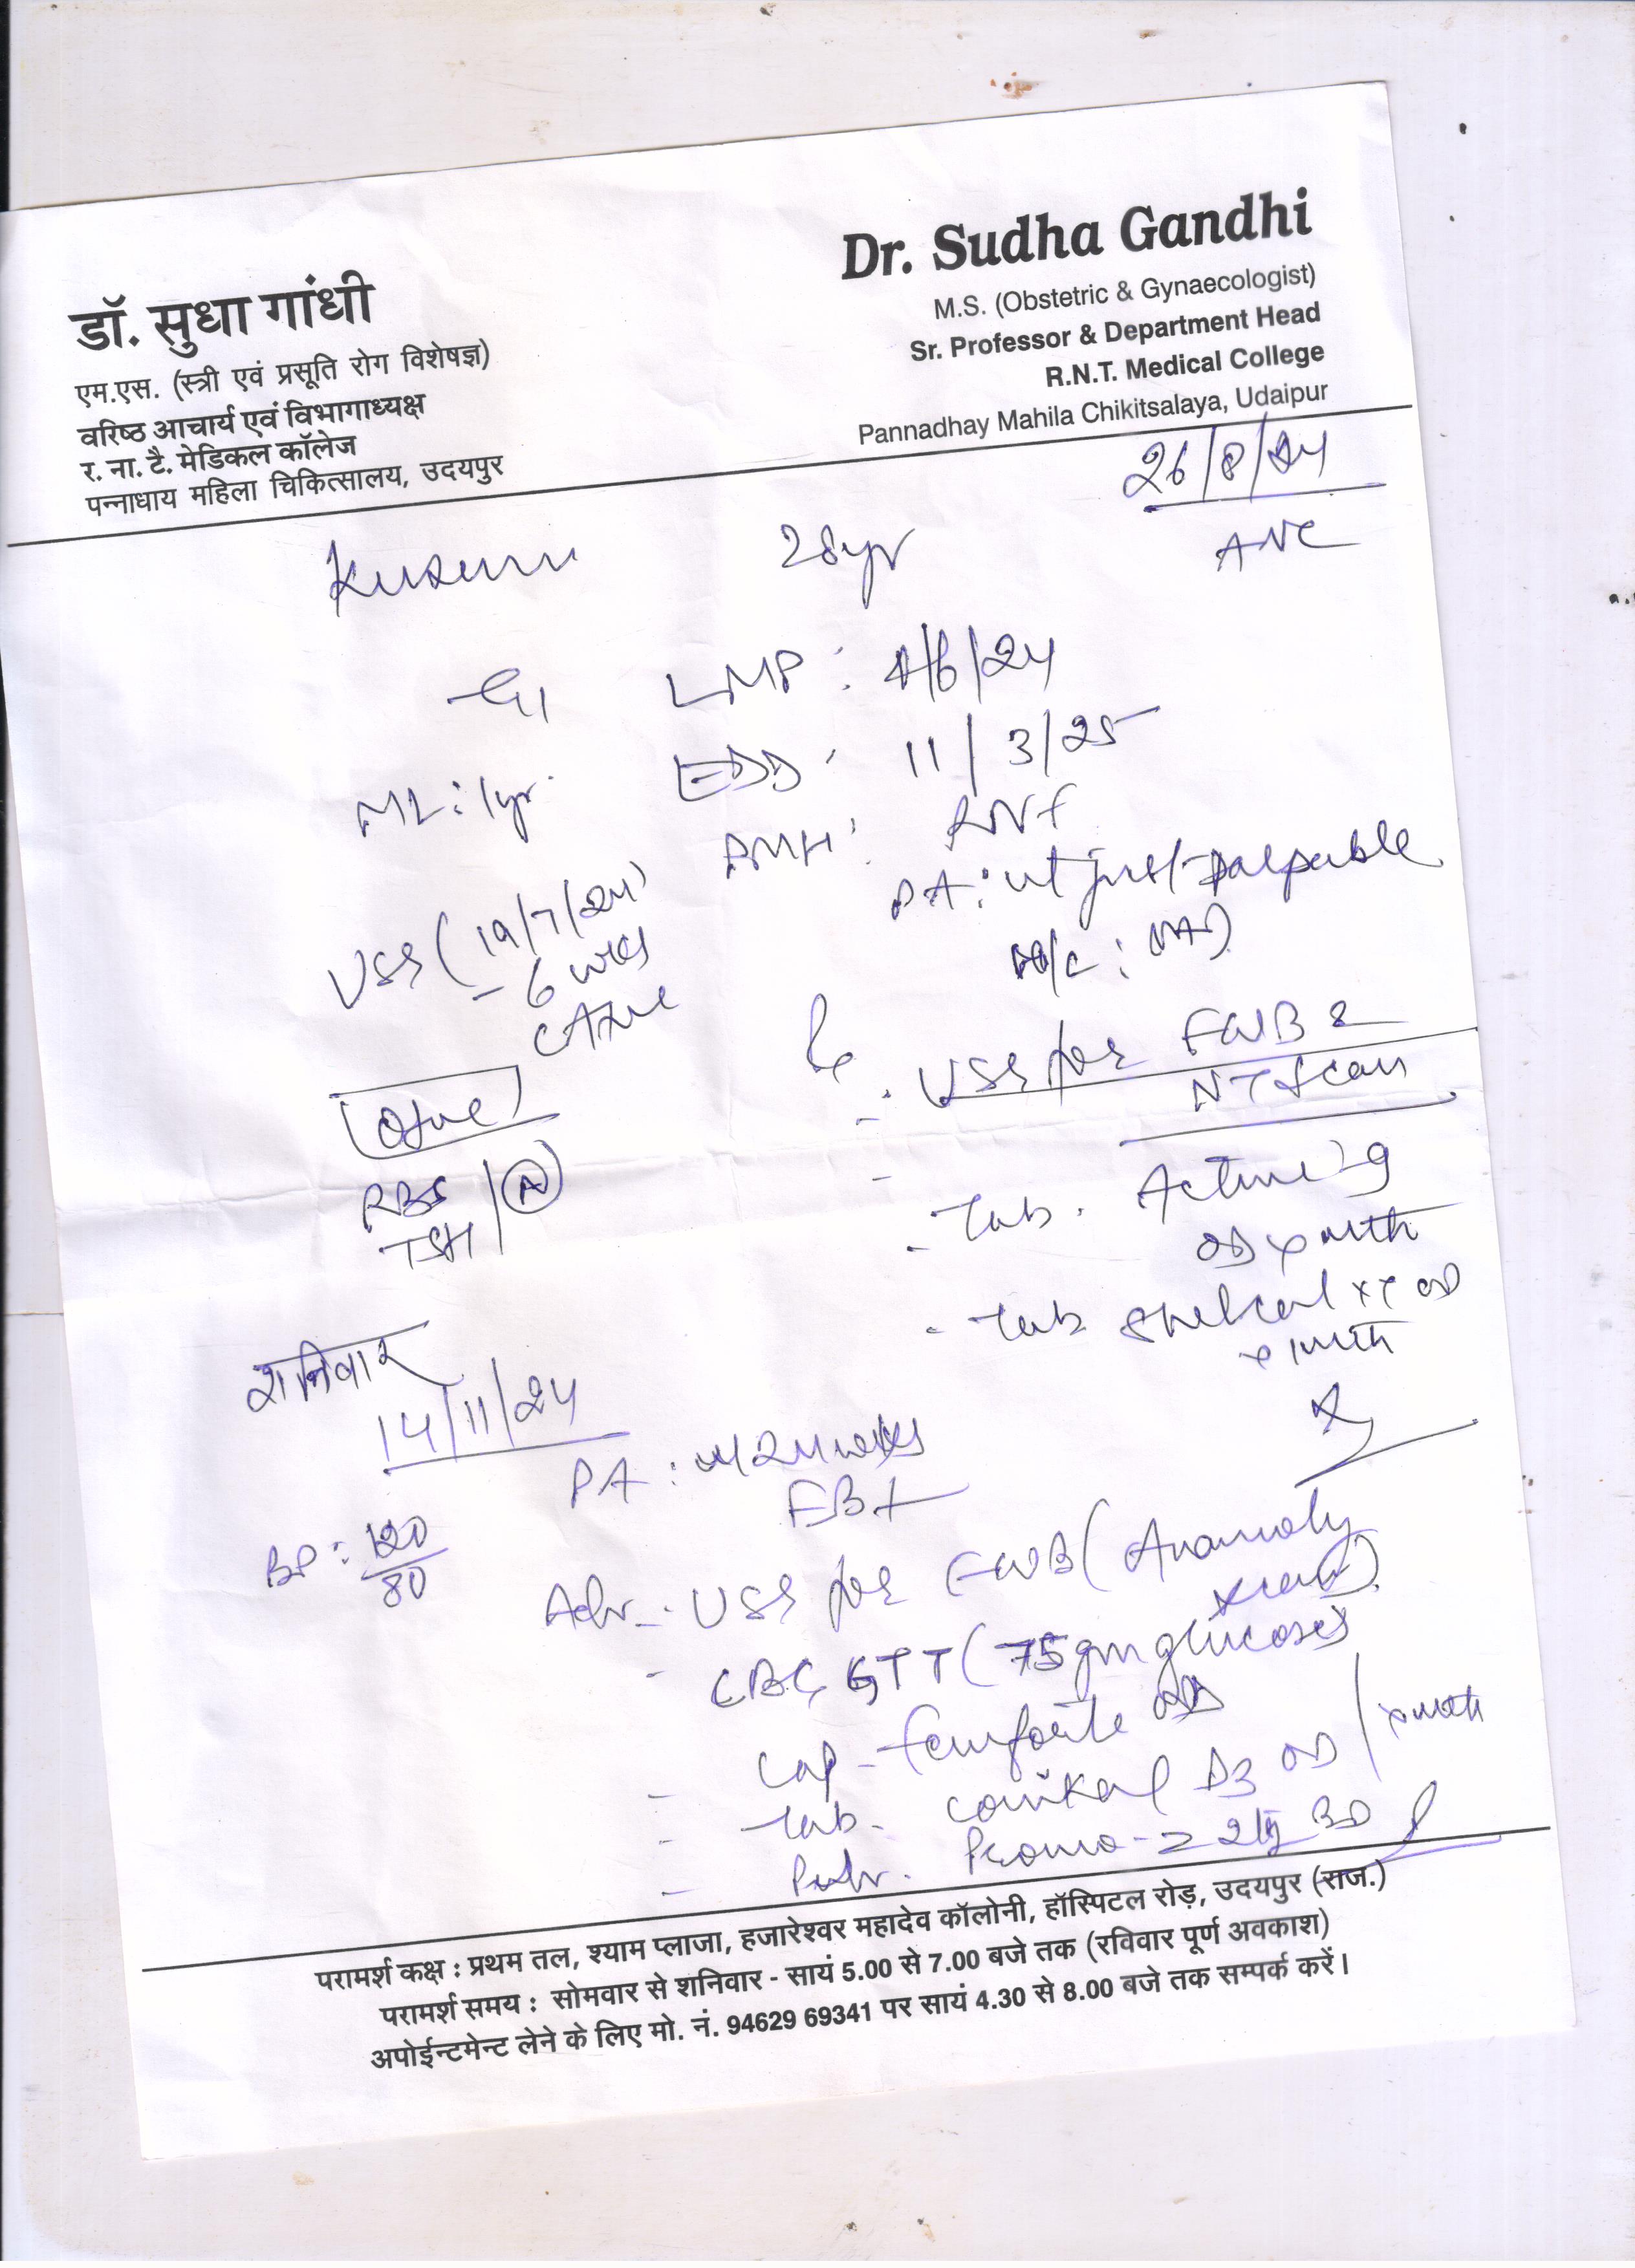 डॉ. सुधा गांधी
एम.एस. (स्त्री एवं प्रसूति रोग विशेषज्ञ)
वरिष्ठ आचार्य एवं विभागाध्यक्ष
र. ना. टै. मेडिकल कॉलेज
पन्नाधाय महिला चिकित्सालय, उदयपुर
Dr. Sudha Gandhi
M.S. (Obstetric & Gynaecologist)
Sr. Professor & Department Head
R.N.T. Medical College
Pannadhay Mahila Chikitsalaya, Udaipur
26/8/24
ANC
Kusum 28yr
G1 LMP: 4/6/24
ML: 1yr. EDD: 11/3/25
PMH:
PA: ut just palpable
USG (19/7/24)
- 6 wks
USG for FWB &
NT Scan
O+ve
RBS
TSH
N
- Tab.
OD x mth
- Tab Shelcal XT OD
x 1mth
शनिवार
14/11/24
PA: ut 24 wks
BP: 120/80
Adv - USG for FWB (Anomaly
scan)
- CBC, GTT (75 gm glucose)
- Cap - OD
- Tab. D3 OD x mth
- BD
परामर्श कक्ष : प्रथम तल, श्याम प्लाजा, हजारेश्वर महादेव कॉलोनी, हॉस्पिटल रोड़, उदयपुर (राज.)
परामर्श समय : सोमवार से शनिवार - सायं 5.00 से 7.00 बजे तक (रविवार पूर्ण अवकाश)
अपोईन्टमेन्ट लेने के लिए मो. नं. 94629 69341 पर सायं 4.30 से 8.00 बजे तक सम्पर्क करें।